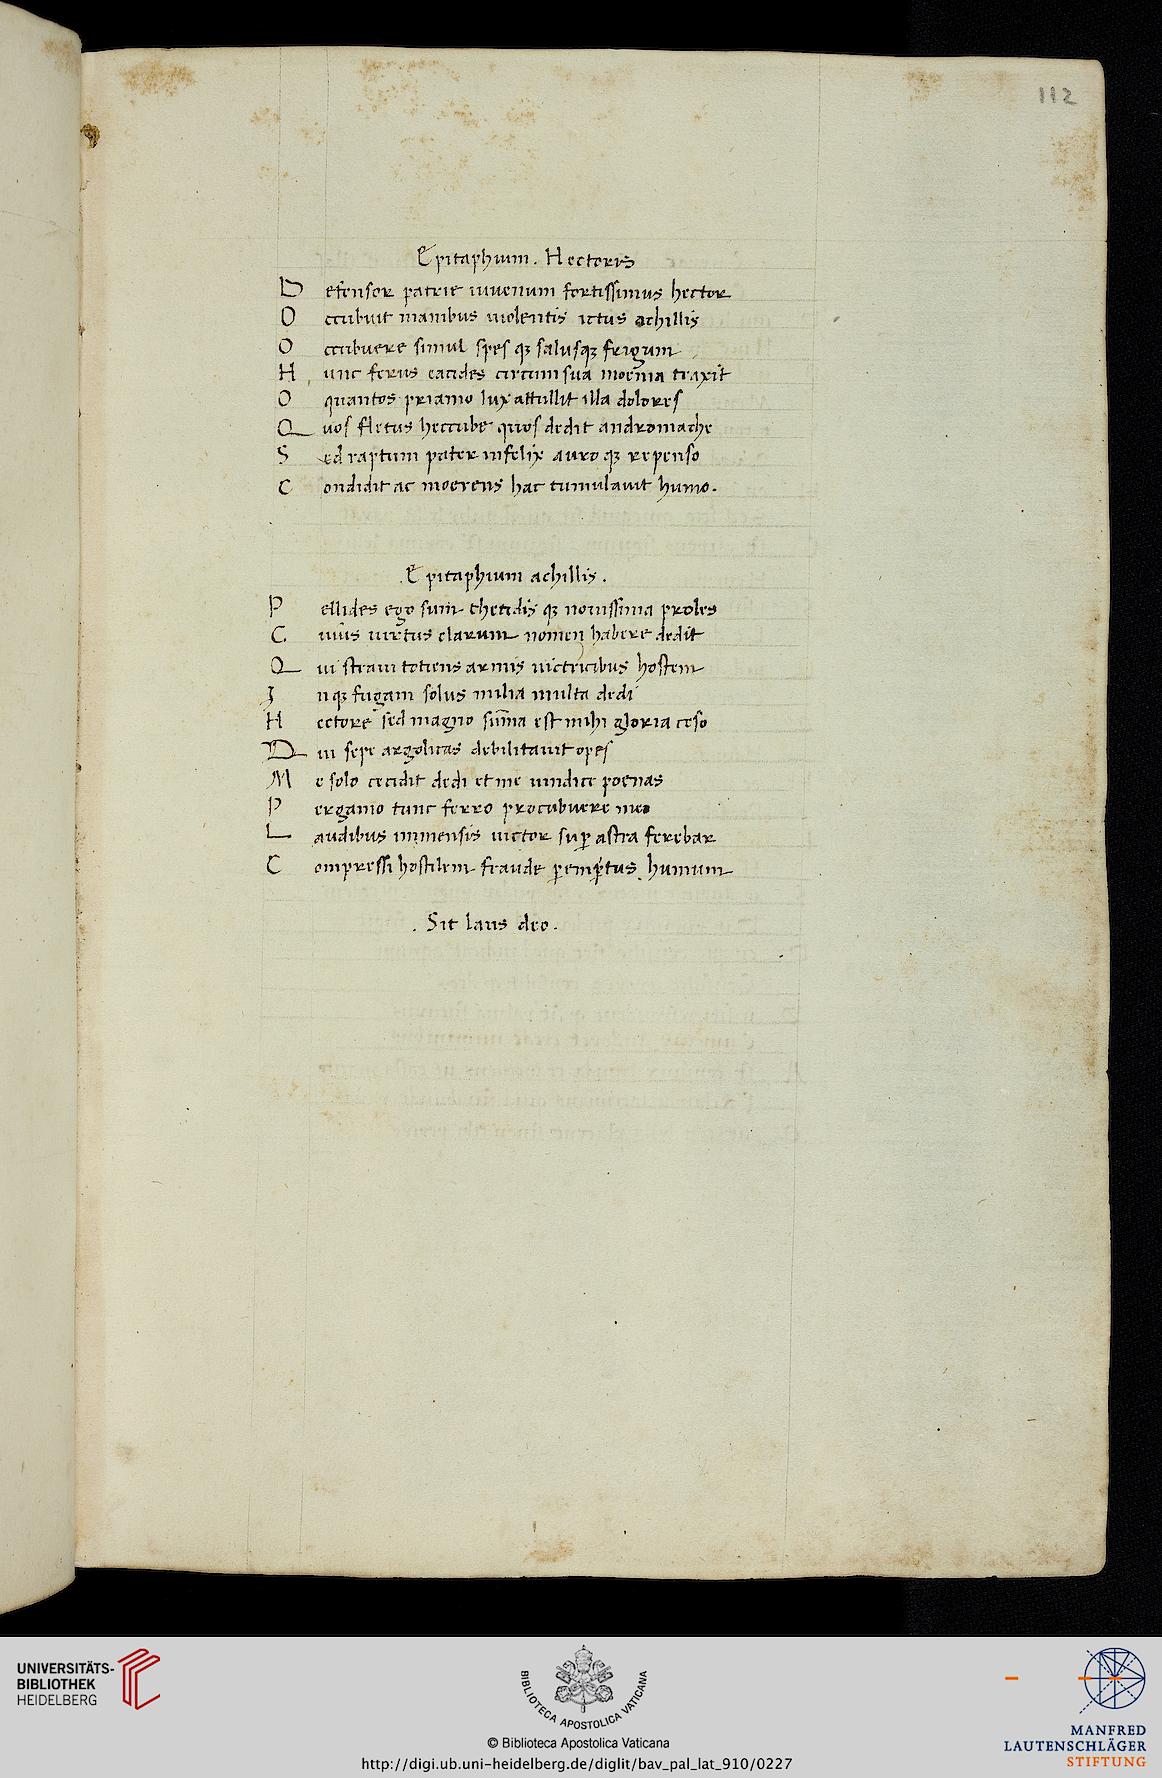 112
Epitaphium. Hectoris
Defensor patrie iuvenum fortissimus hector
Occubuit manibus violentis ictus achillis
Occubuere simul spes qȝ salusqȝ frigum
Hunc ferus eacides circum sua moenia traxit
O quantos priamo lux attullit illa dolores
Quos fletus heccube quos dedit andromache
Sed raptum pater infelix auro qȝ repenso
Condidit ac moerens hac tumulavit humo.
.Epitaphium achillis.
Pellides ego sum thetidis qȝ notissima proles
Cuius virtus clarum nomen habere dedit
Qui stravi totiens armis victricibus hostem
Inqȝ fugam solus milia multa dedi
Hectore sed magno sum̄a est mihi gloria ceso
Qui sepe argolicas debilitavit opes
Me solo cecidit dedi et me vindice poenas
Pergamo tunc ferro procubuere meo
Laudibus immensis victor sup̱ astra ferebar
Compressi hostilem fraude p̱emptus humum
. Sit laus deo.
UNIVERSITÄTS-
BIBLIOTHEK
HEIDELBERG
BIBLIOTECA APOSTOLICA VATICANA
© Biblioteca Apostolica Vaticana
http://digi.ub.uni-heidelberg.de/diglit/bav_pal_lat_910/0227
MANFRED
LAUTENSCHLÄGER
STIFTUNG